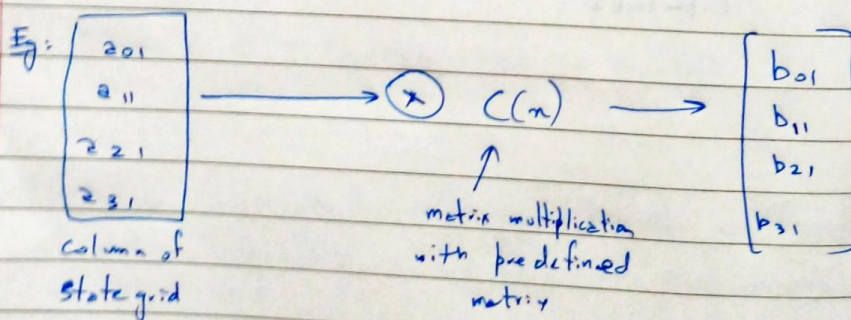 Eg:
a01
a11
a21
a31
column of
state grid
× C(x)
matrix multiplication
with predefined
matrix
b01
b11
b21
b31